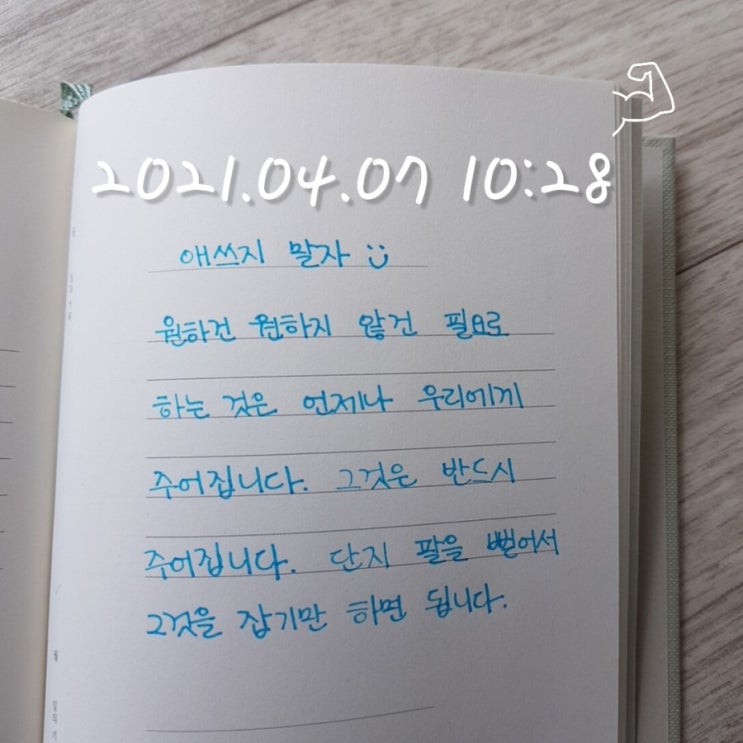 2021.04.07 10:28
애쓰지 말자 :)
원하건 원하지 않건 필요로
하는 것은 언제나 우리에게
주어집니다. 그것은 반드시
주어집니다. 단지 팔을 뻗어서
그것을 잡기만 하면 됩니다.